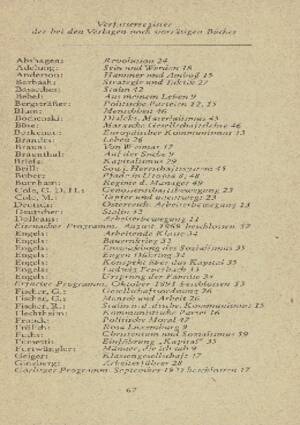 Verfasserregister
der bei den Verlagen noch vorrätigen Bücher
Abshagen: Revolution 24
Adelung: Sein und Werden 18
Anderson: Hammer und Amboß 15
Strategie und Taktik 27
Basseches: Stalin 42
Bebel: Aus meinem Leben 9
Bergsträßer: Politische Parteien 12, 15
Blum: Menschheit 46
Bochenski: Dialekt. Materialismus 43
Böse: Marxsche Gesellschaftslehre 46
Borkenau: Europäischer Kommunismus 13
Brandes: Leben 26
Braun: Von Weimar 17
Braunthal: Auf der Suche 9
Briefs: Kapitalismus 29
Brill: Sowj. Herrschaftssystem 45
Buber: Pfade in Utopia 8; 48
Burnham: Regime d. Manager 49
Cole, G. D. H.: Genossenschaftsbewegung 23
Cole, M.:
Deutsch: Österreich. Arbeiterbewegung 13
Deutscher: Stalin 42
Dolléans: Arbeiterbewegung 11
Eisenacher Programm, August 1869 beschlossen 37
Engels: Arbeitende Klasse 34
Engels: Bauernkrieg 32
Engels: Entwicklung des Sozialismus 35
Engels: Eugen Dühring 34
Engels: Konspekt über das Kapital 35
Engels: Ludwig Feuerbach 35
Engels: Ursprung der Familie 35
Erfurter Programm, Oktober 1891 beschlossen 37
Fischer, G.: Gesellschaftsordnung 26
Fischer, G.: Mensch und Arbeit 26
Fischer, R.: Stalin u. d. dtsche. Kommunismus 15
Flechtheim: Kommunistische Partei 16
Franck: Politische Moral 47
Frölich: Rosa Luxemburg 9
Fuchs: Christentum und Sozialismus 39
Einführung „Kapital“ 35
Furtwängler: Männer, die ich sah 9
Geiger: Klassengesellschaft 27
Ginzberg: Arbeiterführer 28
Görlitzer Programm, September 1921 beschlossen 17
67